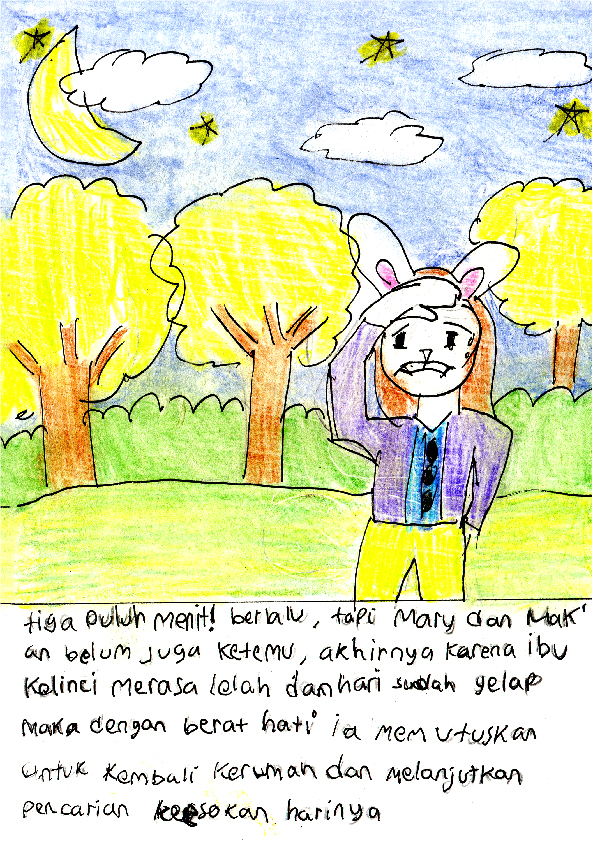 tiga puluh menit! berlalu, tapi Mary dan Mak'
an belum juga ketemu, akhirnya karena ibu
Kelinci merasa lelah dan hari sudah gelap
maka dengan berat hati ia memutuskan
untuk kembali kerumah dan melanjutkan
pencarian keesokan harinya